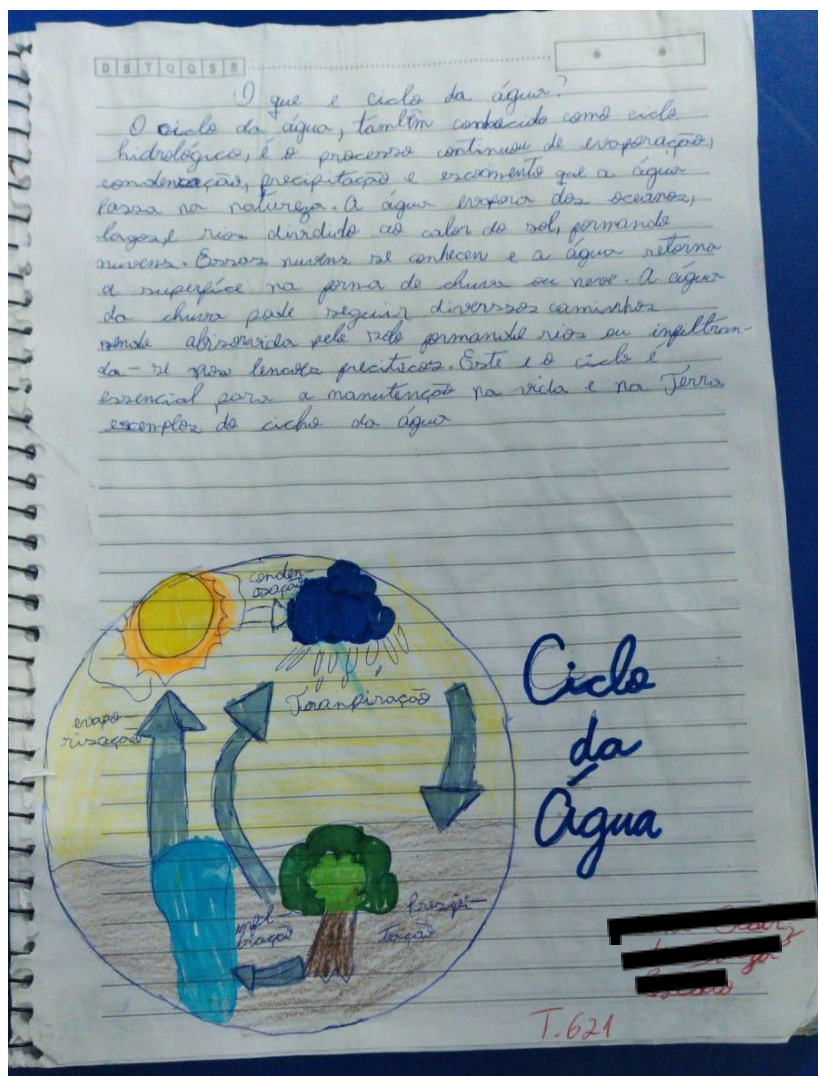 D S T Q Q S S
O que e ciclo da água?
O ciclo da água, também conhecido como ciclo
hidrológico, é o processo continuou de evaporação,
condensação, precipitação e escoamento que a água
passa na natureza. A água evapora dos oceanos,
lagos, e rios dividido ao calor do sol, formando
nuvens. Essas nuvens se conhecen e a água retorna
a superfíce na forma de chuva ou neve. A água
da chuva pode seguir diverssos caminhos
sendo absorvida pelo solo formando rios ou infiltran-
da-se nos lencois precíticos. Este e o ciclo é
essencial para a manutenção na vida e na Terra
escemplos do ciclo da água
conden-
sação
Tranpiração
evapo-
risação
Ciclo
da
Água
Presipi-
tação
infil-
tração
T.621